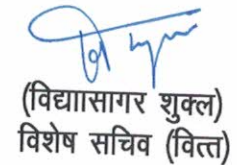 (विद्याासागर शुक्ल)
विशेष सचिव (वित्त)